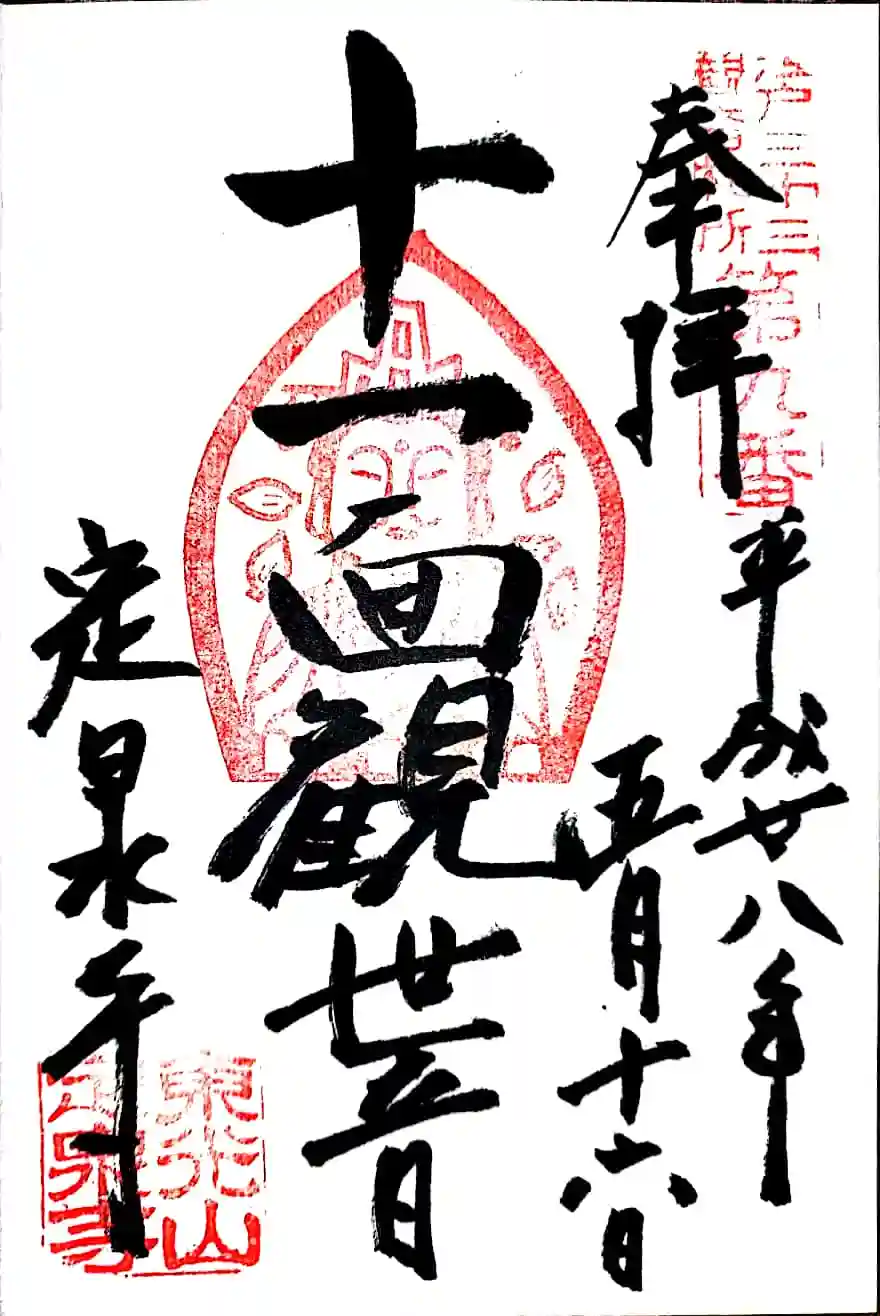 奉拝
平成廿八年
五月十六日
十一面観世音
定泉寺
江戸三十三
観音札所
第九番
東光山
定泉寺